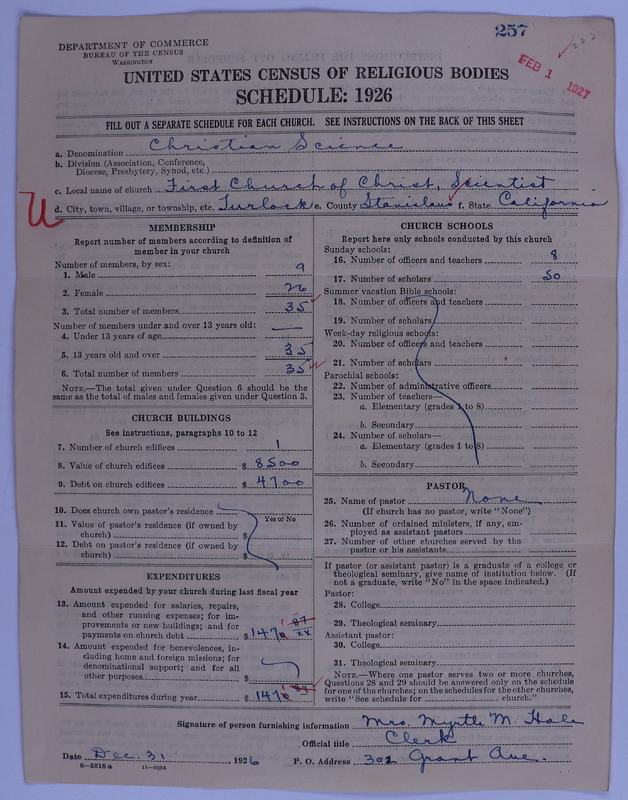 257
FEB 1 1927
DEPARTMENT OF COMMERCE
BUREAU OF THE CENSUS
WASHINGTON
UNITED STATES CENSUS OF RELIGIOUS BODIES
SCHEDULE: 1926
FILL OUT A SEPARATE SCHEDULE FOR EACH CHURCH. SEE INSTRUCTIONS ON THE BACK OF THIS SHEET
a. Denomination Christian Science
b. Division (Association, Conference,
Diocese, Presbytery, Synod, etc.)
c. Local name of church First Church of Christ, Scientist
U
d. City, town, village, or township, etc. Turlock e. County Stanislaus f. State California
MEMBERSHIP
Report number of members according to definition of
member in your church
Number of members, by sex:
1. Male 9
2. Female 26
3. Total number of members 35
Number of members under and over 13 years old:
4. Under 13 years of age —
5. 13 years old and over 35
6. Total number of members 35
NOTE.—The total given under Question 6 should be
same as the total of males and females given under Question 3.
CHURCH BUILDINGS
See instructions, paragraphs 10 to 12
7. Number of church edifices 1
8. Value of church edifices $ 8500
9. Debt on church edifices $ 4700
10. Does church own pastor's residence
Yes or No
11. Value of pastor's residence (if owned by
church) $
12. Debt on pastor's residence (if owned by
church) $
EXPENDITURES
Amount expended by your church during last fiscal year
13. Amount expended for salaries, repairs,
and other running expenses; for im-
provements or new buildings; and for
payments on church debt $ 1470 87 xx
14. Amount expended for benevolences, in-
cluding home and foreign missions; for
denominational support; and for all
other purposes $
15. Total expenditures during year $ 1470 87
CHURCH SCHOOLS
Report here only schools conducted by this church
Sunday schools:
16. Number of officers and teachers 8
17. Number of scholars 50
Summer vacation Bible schools:
18. Number of officers and teachers
19. Number of scholars
Week-day religious schools:
20. Number of officers and teachers
21. Number of scholars
Parochial schools:
22. Number of administrative officers
23. Number of teachers—
a. Elementary (grades 1 to 8)
b. Secondary
24. Number of scholars—
a. Elementary (grades 1 to 8)
b. Secondary
PASTOR
25. Name of pastor None
(If church has no pastor, write "None")
26. Number of ordained ministers, if any, em-
ployed as assistant pastors
27. Number of other churches served by the
pastor or his assistants
If pastor (or assistant pastor) is a graduate of a college or
theological seminary, give name of institution below. (If
not a graduate, write "No" in the space indicated.)
Pastor:
28. College
29. Theological seminary
Assistant pastor:
30. College
31. Theological seminary
NOTE.—Where one pastor serves two or more churches,
Questions 28 and 29 should be answered only on the schedule
for one of the churches; on the schedules for the other churches,
write "See schedule for church."
Signature of person furnishing information Mrs. Myrtle M. Hale
Official title Clerk
Date Dec. 31, 1926 P. O. Address 302 Grant Ave.
8—5518a 11—9054